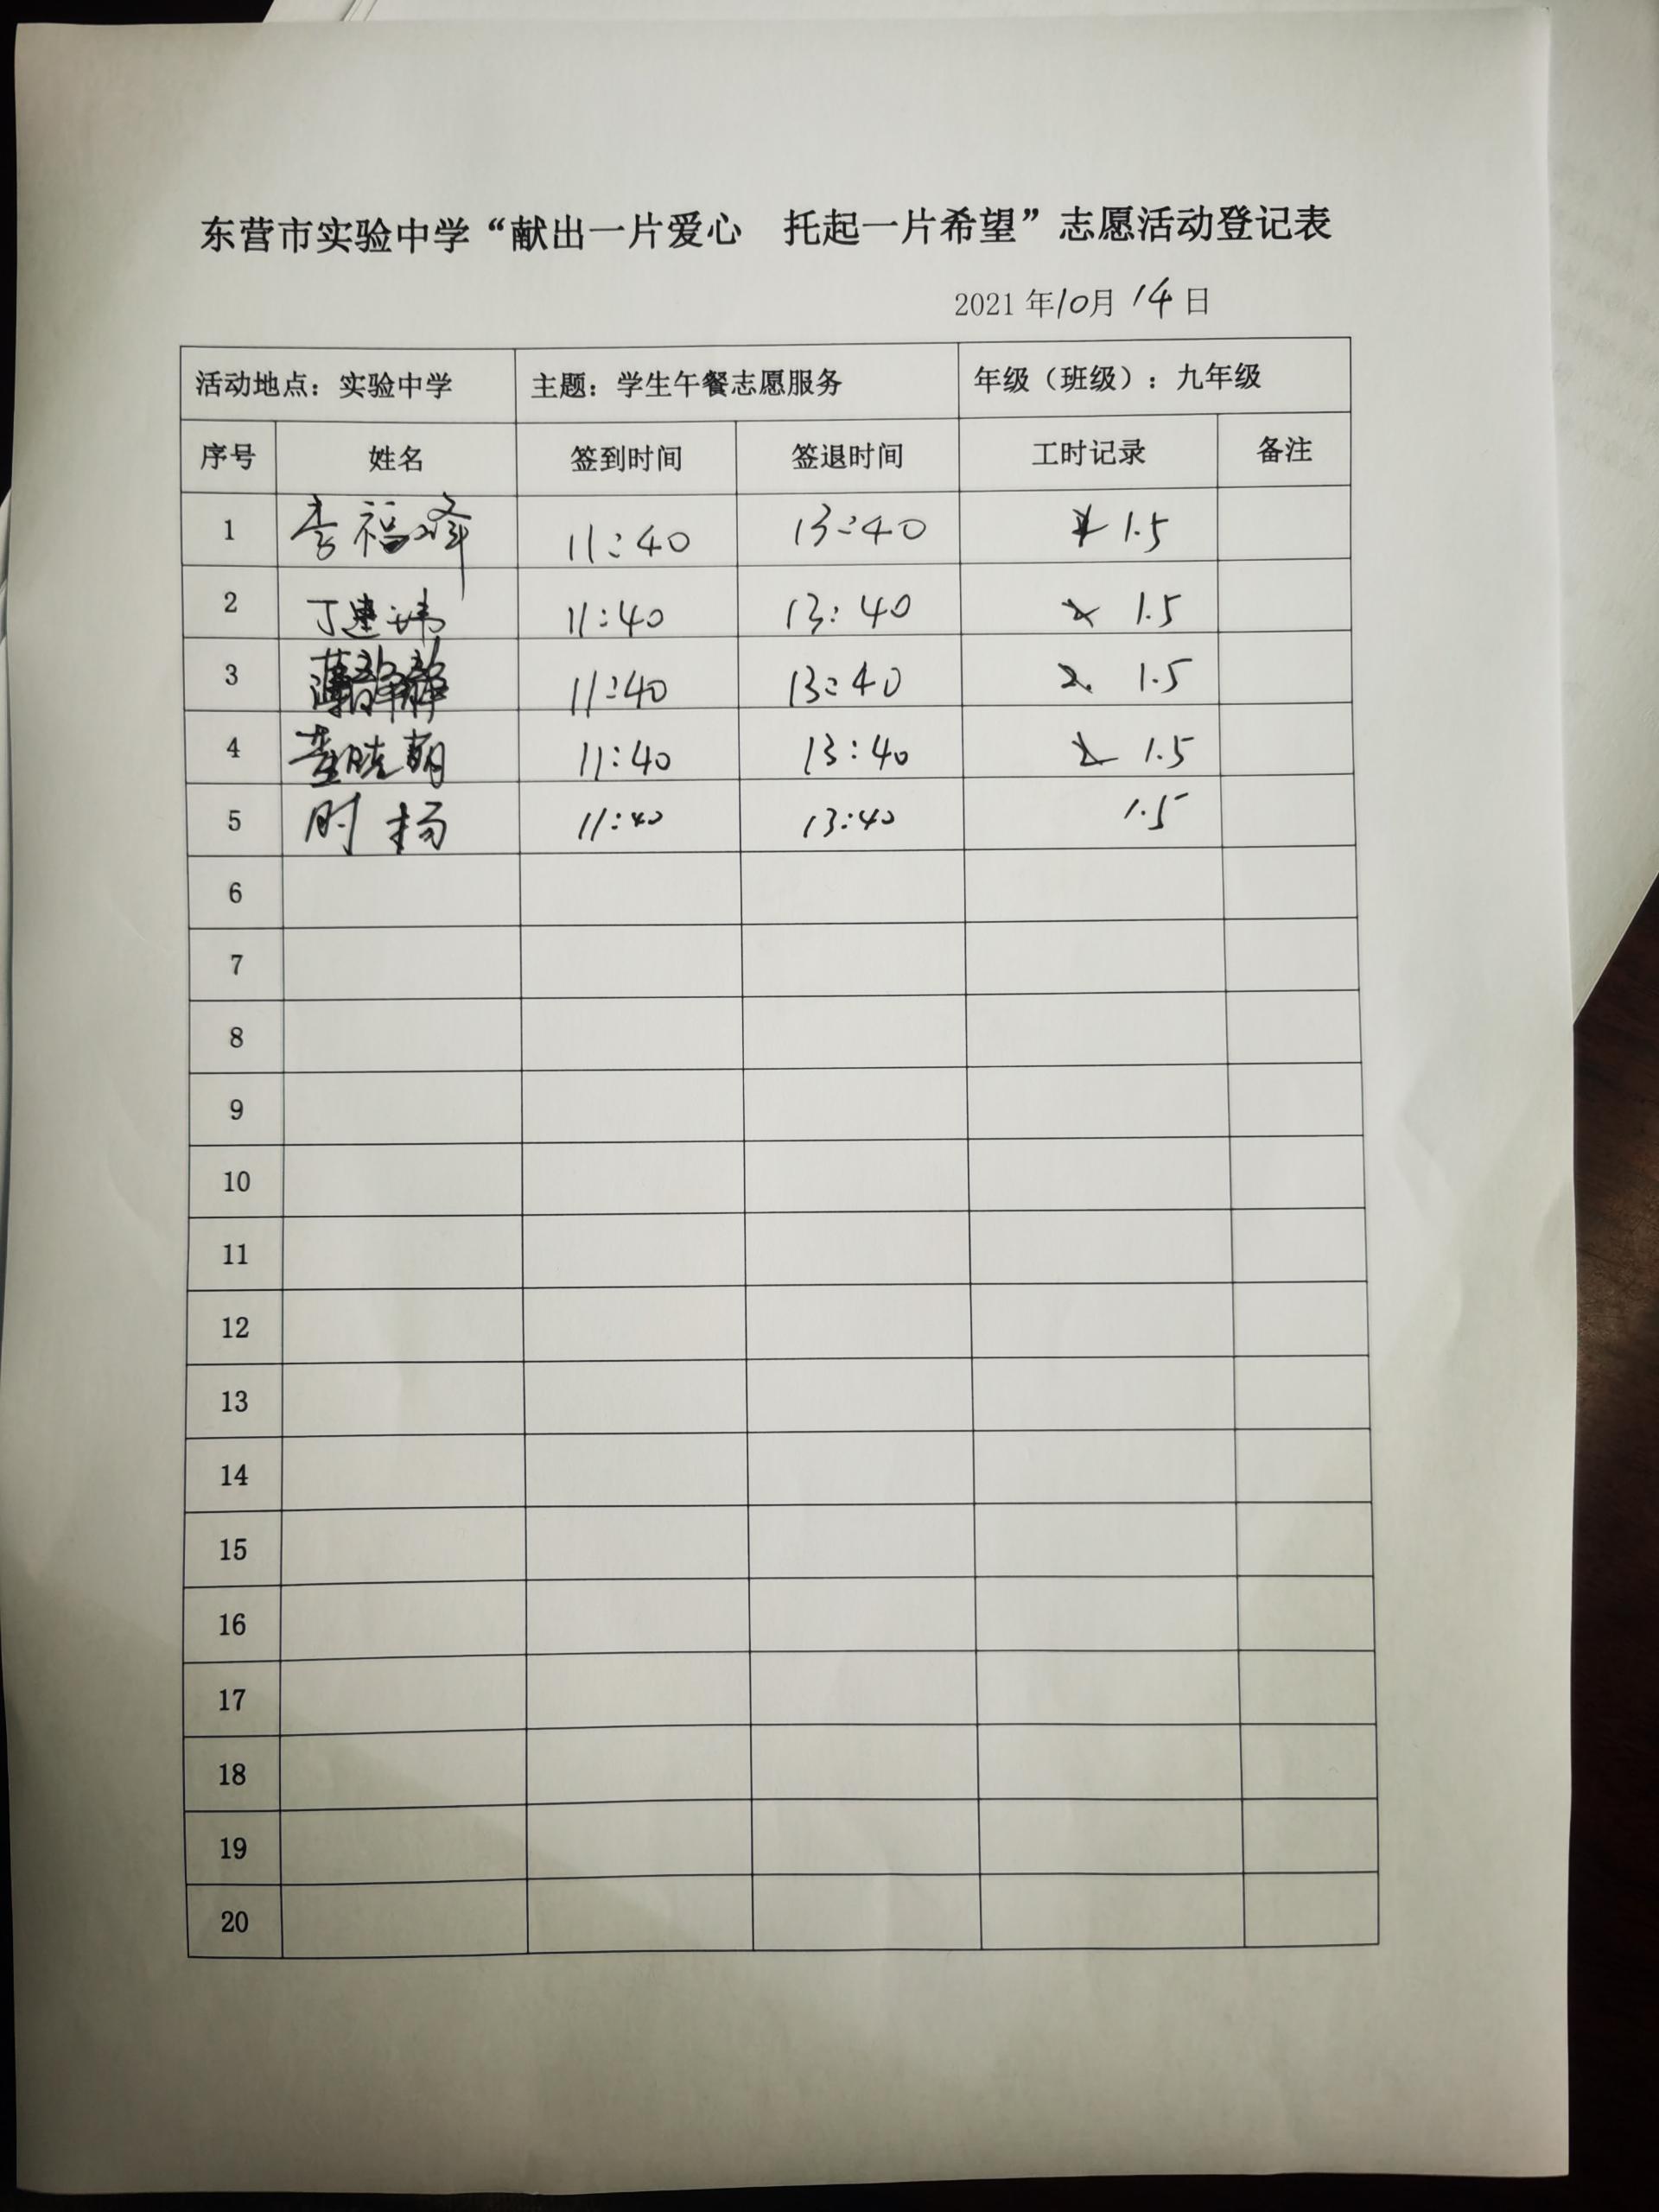 东营市实验中学“献出一片爱心 托起一片希望”志愿活动登记表
2021年10月14日
活动地点：实验中学 主题：学生午餐志愿服务 年级（班级）：九年级
序号 姓名 签到时间 签退时间 工时记录 备注
1 李福峰 11:40 13:40 1.5
2 丁建玮 11:40 13:40 1.5
3 11:40 13:40 2. 1.5
4 董晓朝 11:40 13:40 1.5
5 时扬 11:40 13:40 1.5
6
7
8
9
10
11
12
13
14
15
16
17
18
19
20